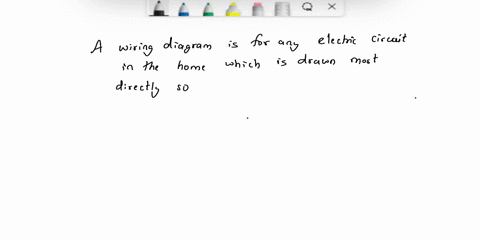 A wiring diagram is for any electric circuit
in the home which is drawn most
directly so